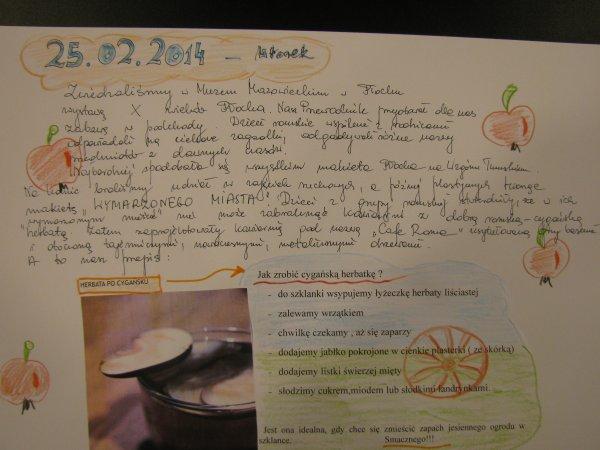 25.02.2014 - wtorek
Zwiedzaliśmy w Muzeum Mazowieckim w Płocku
wystawę X wieków Płocka. Nasz Przewodnik przygotował dla nas
zabawę w podchody. Dzieci romskie wspólnie z rodzicami
odpowiadali na ciekawe zagadki, odgadywali różne nazwy
przedmiotów z dawnych czasów.
Najbardziej spodobała się wszystkim makieta Płocka na Wzgórzu Tumskim.
Na koniec braliśmy udział w zajęciach ruchowych, a później plastycznych tworząc
makietę "WYMARZONEGO MIASTA". Dzieci z grupy romskiej stwierdziły, że w ich
wymarzonym mieście nie może zabraknąć kawiarni z dobrą romską-cygańską
herbatą. Zatem zaprojektowały kawiarnię pod nazwą "Cafe Roma" usytuowaną przy basenie
i otoczoną tajemniczymi, nowoczesnymi, metalowymi drzewami.
A to nasz przepis:
HERBATA PO CYGAŃSKU
Jak zrobić cygańską herbatkę ?
- do szklanki wsypujemy łyżeczkę herbaty liściastej
- zalewamy wrzątkiem
- chwilkę czekamy , aż się zaparzy
- dodajemy jabłko pokrojone w cienkie plasterki ( ze skórką)
- dodajemy listki świerzej mięty
- słodzimy cukrem,miodem lub słodkimi landrynkami.
Jest ona idealna, gdy chce się zmieścić zapach jesiennego ogrodu w
szklance. Smacznego!!!